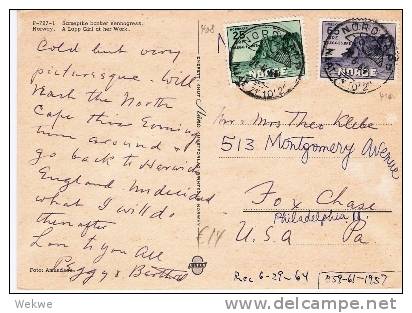 P-727-1 Samepike banker sennegress.
Norway. A Lapp Girl at her Work.
Cold but very
picturesque. Will
reach the North
Cape this Evening
turn around &
go back to Harwich
England. Undecided
what I will do
thereafter
Love to you All
Peggy &
Foto:
NORGE
25
NORGE
65
408
Mr & Mrs Theo Klebe
513 Montgomery Avenue
Fox Chase
Philadelphia 11.
U.S.A Pa
€14
Rec 6-29-64
1957
Wekwe
delcampe.net